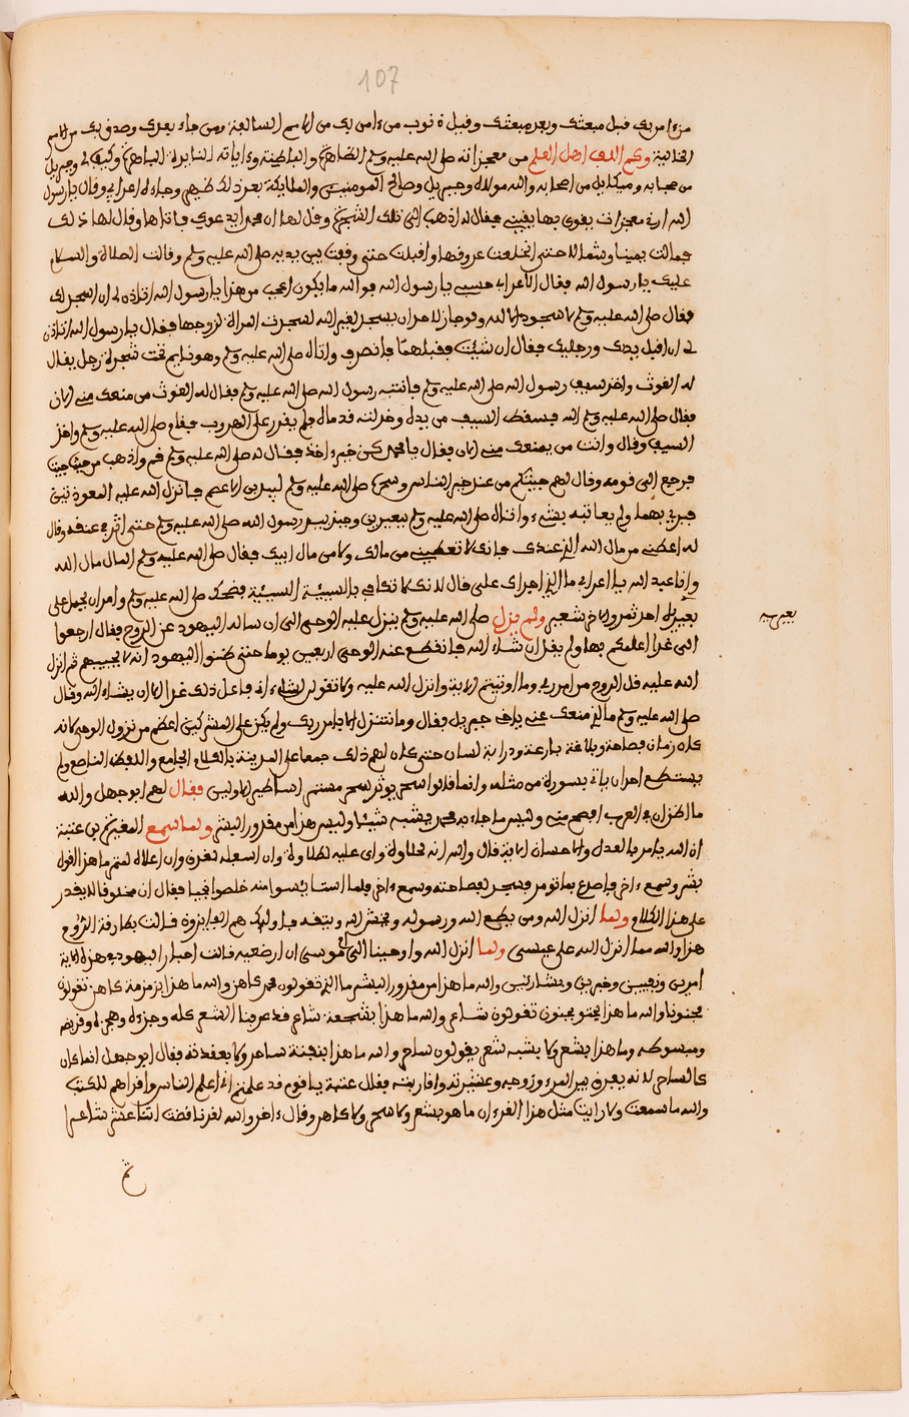 107
من ءامن بك قبل مبعثك وبعد مبعثك وقبل توب من ءامن بك من الامم السالفة ومن جاء بعدك وصدق بك من الامم
الخالية وكم اللف اهل العلم من معجزاته صلى الله عليه وسلم الظاهرة والباطنة وءاياته البا هرة وكيف لا وجبريل
من صحابه وميكايل من اصحابه والله مولاه وجبريل وصالح المومنين والملايكة بعد ذلك ظهير وجاءه اعرابي وقال يا رسول
الله ارني معجزات يقوى بها يقيني فقال له اذهب الى تلك الشجرة وقل لها ان محمدا يدعوك فاتاها وقال لها ذلك
فمالت يمينا وشمالا حتى انخلعت عروقها واقبلت حتى وقفت بين يديه صلى الله عليه وسلم وقالت الصلاة والسلام
عليك يا رسول الله فقال الاعرابي حسبي يا رسول الله فوالله ما يكون اعجب من هذا يا رسول الله اتاذن لي ان اسجد لك
فقال صلى الله عليه وسلم لا سجود الا لله ولو جاز لاحد ان يسجد لغير الله لسجدت المراة لزوجها فقال يا رسول الله اتاذن
لي ان اقبل يديك ورجليك فقال ان شئت فقبلهما فانصرف واتاه صلى الله عليه وسلم وهو نايم تحت شجرة رجل يقال
له الغوث واخذ سيف رسول الله صلى الله عليه وسلم فانتبه رسول الله صلى الله عليه وسلم فقال له الغوث من يمنعك مني الان
فقال صلى الله عليه وسلم الله فسقط السيف من يده وخذلته قدماه فلم يقدر على الهروب فقام صلى الله عليه وسلم واخذ
السيف وقال وانت من يمنعك مني الان فقال يا محمد كن خير ءاخذ فقال له صلى الله عليه وسلم قم واذهب من حيث جيت
فرجع الى قومه وقال لهم جيتكم من عند خير الناس وسحر صلى الله عليه وسلم لبيد بن الاعصم فانزل الله عليه المعوذتين
فبرئ بهما ولم يعاتبه بشيء واتاه صلى الله عليه وسلم ببعيرين وجبذ برد رسول الله صلى الله عليه وسلم حتى اثر في عنقه وقال
له اعطني من مال الله الذي عندك فانك لا تعطيني من مالك ولا من مال ابيك فقال صلى الله عليه وسلم المال مال الله
وانا عبد الله يا اعرابي ما الذي اجراك على قال لانك لا تكافي بالسيئة السيئة فضحك صلى الله عليه وسلم وامر ان يحمل على
بعير له احد ثمر والاخر شعير ولم يزل صلى الله عليه وسلم ينزل عليه الوحي الى ان ساله اليهود عن الروح فقال ارجعوا
بعيريه
الى غدا اعلمكم بها ولم يقل ان شاء الله فانقطع عنه الوحي اربعين يوما حتى ظنوا اليهود انه لا يجيبهم ثم انزل
الله عليه قل الروح من امر ربي وما اوتيتم الاية وانزل الله عليه ولا تقولن لشيء اني فاعل ذلك غدا الا ان يشاء الله وقال
صلى الله عليه وسلم ما الذي منعك عني يا اخي جبريل فقال وما نتنزل الا بامر ربك ولم يكن على المشركين اعظم من نزول الوحي لانه
كان زمان فصاحة وبلاغة بارعة ودراية لسان حتى كان لهم ذلك جمعا على المدينة بالكلام الجامع واللفظ الناصع ولم
يستطع احد ان ياتي بسورة من مثله وانما قالوا سحر يوثر سحر مستمر اساطير الاولين فقال لهم ابو جهل والله
ما اظن ان في العرب افصح مني وليس ما جاء به محمد يشبه شيئا وليس هذا من مقدور البشر ولما سمع المغيرة بن عتبة
ان الله يامر بالعدل والاحسان الاية قال والله ان له لحلاوة وان عليه لطلاوة وان اسفله لمغرق وان اعلاه لمثمر ما هذا القول
بشر وسمع ءاخر فاصدع بما تومر فسجد لفصاحته وسمع ءاخر فلما استايسوا منه خلصوا نجيا فقال ان مخلوقا لا يقدر
على هذا الكلام ولما انزل الله ومن يطع الله ورسوله ويخش الله ويتقه فاولئك هم الفايزون قالت بطارقة الروم
هذا والله مما انزل الله على عيسى ولما انزل الله واوحينا الى ام موسى ان ارضعيه قالت احبار اليهود في هذه الاية
امرين ونهيين وخبرين وبشارتين والله ما هذا من مقدور البشر ما الذي تقولون محمد كاهن والله ما هذا بزمزمة كاهن تقولون
مجنونا والله ما هذا يحنو مجنون تقولون شاعر والله ما هذا بشجعة شاعر قد عرفنا الشعر كله وجزءه وهجزه وقريضه
ومبسوطه وما هذا بشعر ولا يشبه شعر يقولون ساحر والله ما هذا بنفثة ساحر ولا بعقدته فقال ابو جهل انما كان
كالساحر لانه يفرق بين المرء وزوجه وعشيرته واقاربه فقال عتبة يا قوم قد علمتم اني اعلم الناس واقراهم للكتب
والله ما سمعت ولا رايت مثل هذا القرءان ما هو بشعر ولا سحر ولا كاهن وقال ءاخر والله لقد ناقضت اثنا عشر شاعرا